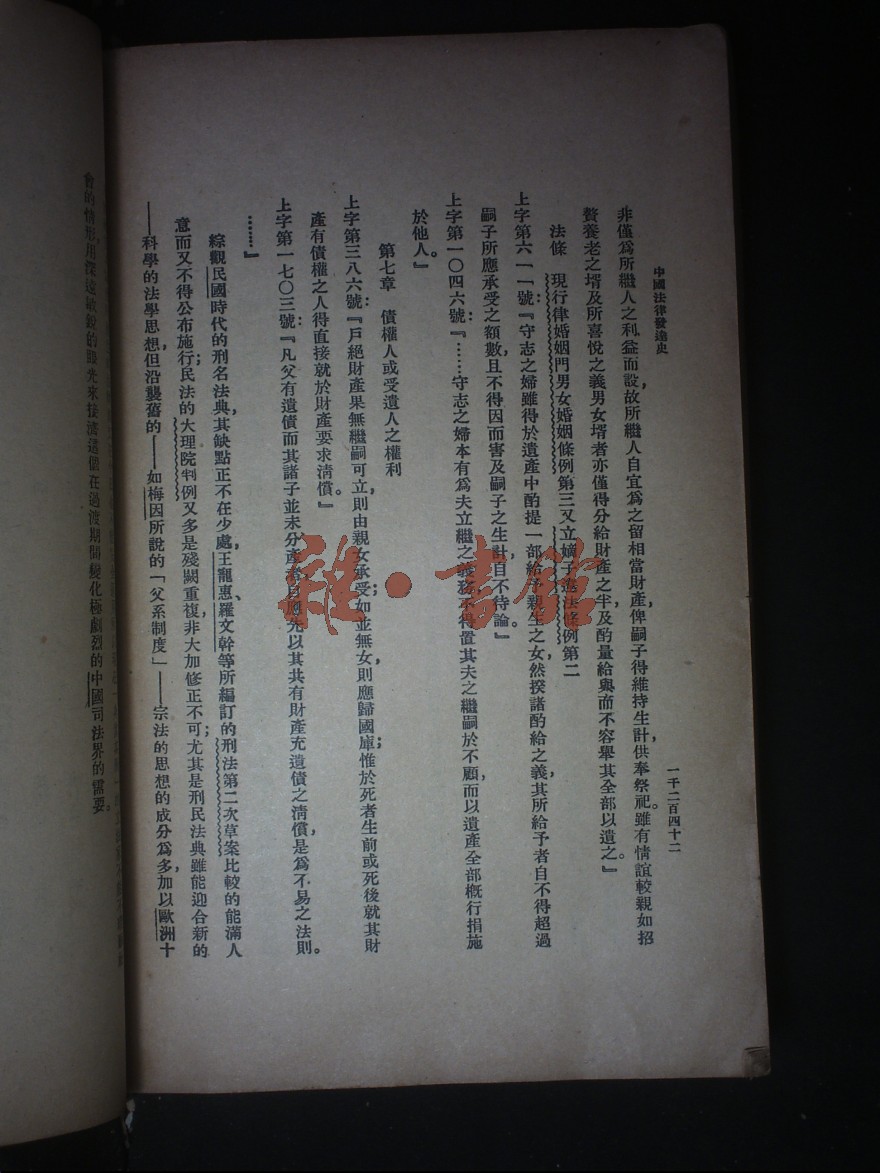 中國法律發達史
一千二百四十二
非僅爲所繼人之利益而設，故所繼人自宜爲之留相當財產，俾嗣子得維持生計，供奉祭祀。雖有情誼較親如招
贅養老之壻及所喜悅之義男女壻者亦僅得分給財產之半及酌量給與而不容舉其全部以遺之。』
法條　現行律婚姻門男女婚姻條例第三又立嫡子違法條例第二
上字第六一一號：『守志之婦雖得於遺產中酌提一部給予親生之女然揆諸酌給之義其所給予者自不得超過
嗣子所應承受之額數，且不得因而害及嗣子之生計，自不待論。』
上字第一〇四六號：『……守志之婦本有爲夫立繼之義務，不得置其夫之繼嗣於不顧，而以遺產全部槪行捐施
於他人。』
第七章　債權人或受遺人之權利
上字第三八六號：『戶絕財產果無繼嗣可立，則由親女承受；如並無女則應歸國庫；惟於死者生前或死後就其財
產有債權之人得直接就於財產要求淸償。』
上字第一七〇三號：『凡父有遺債而其諸子並未分產者，自應先以其共有財產充遺債之淸償，是爲不易之法則。
……』
綜觀民國時代的刑名法典，其缺點正不在少處，王寵惠、羅文幹等所編訂的刑法第二次草案比較的能滿人
意而又不得公布施行；民法的大理院判例又多是殘闕重複，非大加修正不可；尤其是刑民法典雖能迎合新的
——科學的法學思想但沿襲舊的——如梅因所說的「父系制度」——宗法的思想的成分爲多，加以歐洲十
會的情形，用深遠敏銳的眼光來接濟這個在過渡期間變化極劇烈的中國司法界的需要。
雜·書館